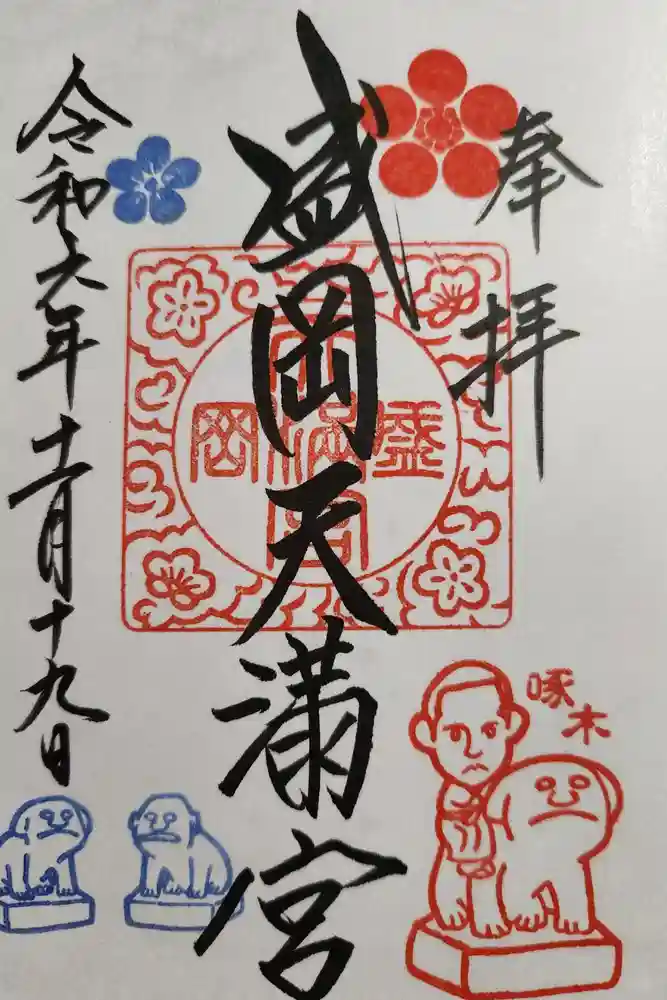 奉拝
盛岡天満宮
盛岡天満宮
令和六年十一月十九日
啄木